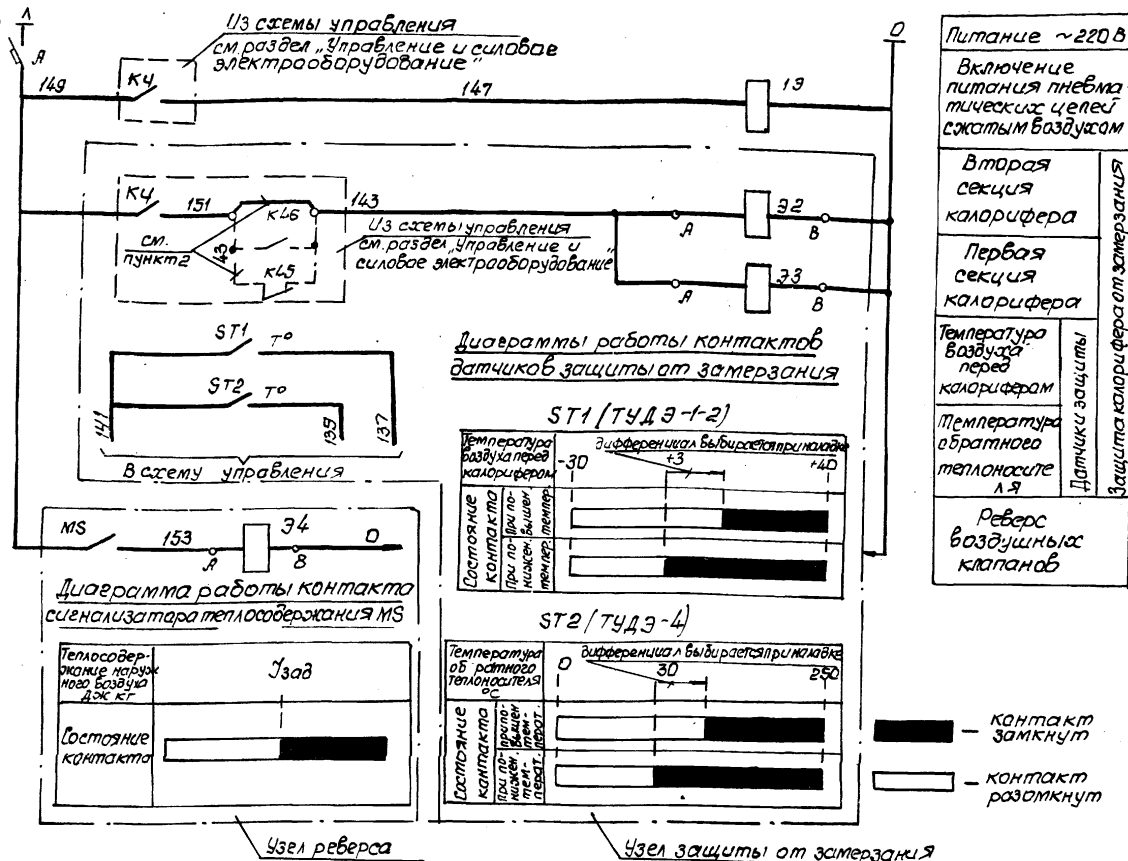 Л
А
Из схемы управления
см. раздел „Управление и силовое
электрооборудование"
149
К4
147
1Э
0
К4
151
К46
143
см.
пункт 2
43
К45
Из схемы управления
см. раздел „Управление и
силовое электрооборудование"
А
Э2
В
А
Э3
В
ST1
Т°
ST2
Т°
141
139
137
В схему управления
MS
153
А
Э4
В
0
Диаграмма работы контакта
сигнализатора теплосодержания MS
Теплосодер-
жание наруж
ного воздуха
Дж кг
Jзад
Состояние
контакта
Узел реверса
Диаграммы работы контактов
датчиков защиты от замерзания
ST1 (ТУДЭ-1-2)
Температура
воздуха перед
калорифером
дифференциал выбирается при наладке
-30
+3
+40
Состояние
контакта
При по-
вышен.
темпер.
При по-
нижен.
темпер.
ST2 (ТУДЭ-4)
Температура
обратного
теплоносителя
°С
дифференциал выбирается при наладке
0
30
250
Состояние
контакта
При по-
вышен
тем-
перат.
При по-
нижен.
тем-
перат.
Узел защиты от замерзания
контакт
замкнут
контакт
разомкнут
Питание ~220 В
Включение
питания пневма-
тических цепей
сжатым воздухом
Вторая
секция
калорифера
Первая
секция
калорифера
Температура
воздуха
перед
калорифером
Температура
обратного
теплоносите
ля
Датчики защиты
Защита калорифера от замерзания
Реверс
воздушных
клапанов